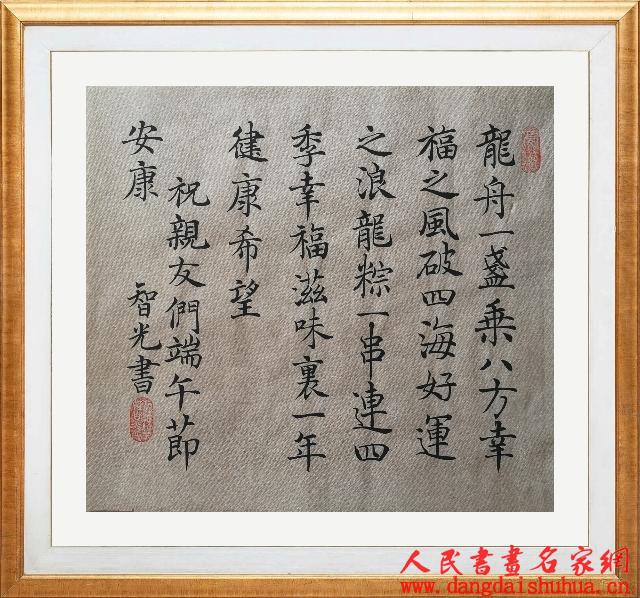 龍舟一盞乘八方幸
福之風破四海好運
之浪龍粽一串連四
季幸福滋味裏一年
健康希望
祝親友們端午節
安康
智光書
人民書畫名家網
www.dangdaishuhua.cn